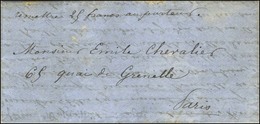 remettre 25 francs au porteur.
Monsieur Emile Chevalier
65 quai de Grenelle
Paris